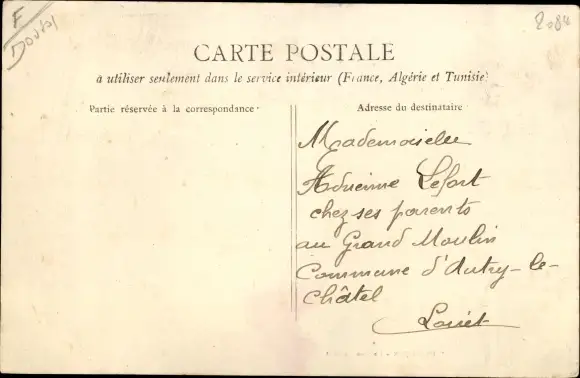 F
Doubl
2.84
CARTE POSTALE
à utiliser seulement dans le service intérieur (France, Algérie et Tunisie)
Partie réservée à la correspondance
Adresse du destinataire
Mademoiselle
Adrienne Lefort
chez ses parents
au Grand Moulin
Commune d'Autry-le-
Châtel
Loiret